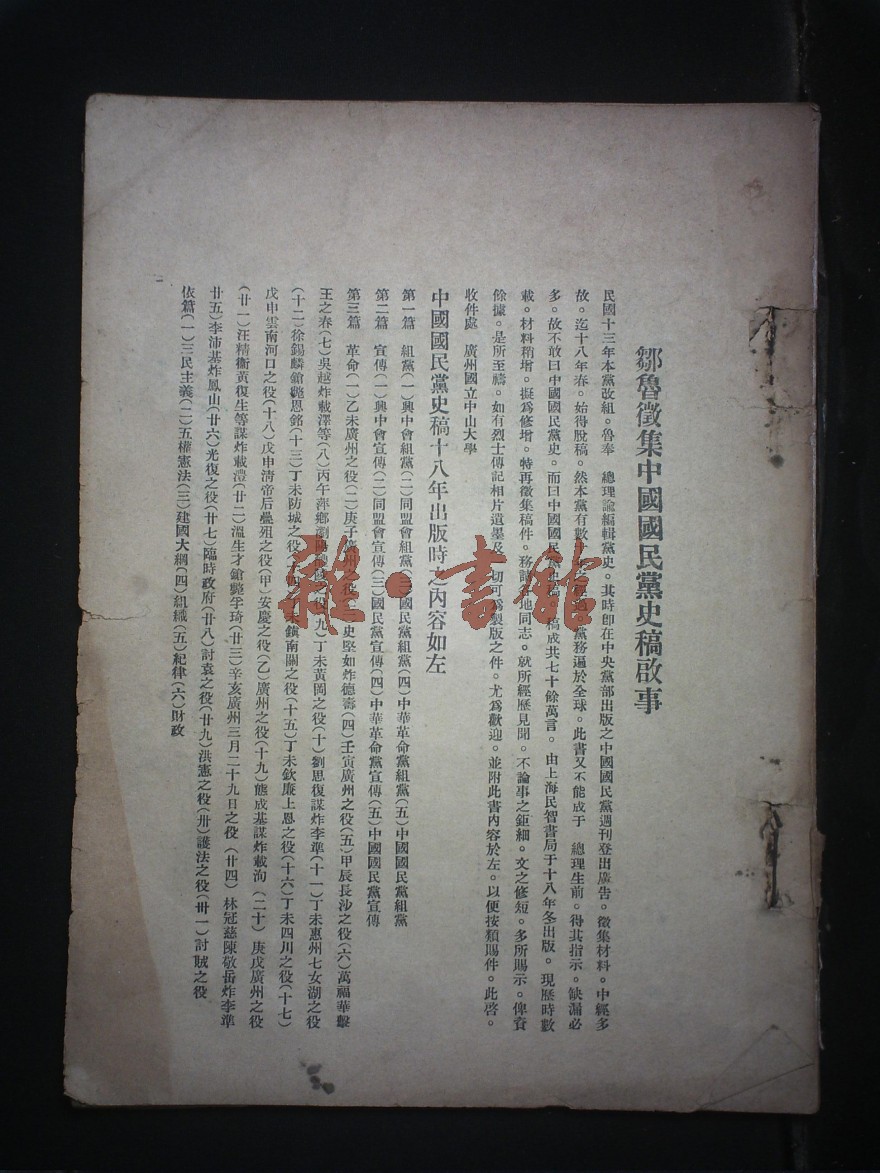 鄒魯徵集中國國民黨史稿啟事
民國十三年本黨改組。魯奉 總理諭編輯黨史。其時即在中央黨部出版之中國國民黨週刊登出廣告。徵集材料。中經多
故。迄十八年春。始得脫稿。然本黨有數十年之 黨務遍於全球。此書又不能成于 總理生前。得其指示。缺漏必
多。故不敢曰中國國民黨史。而曰中國國民黨史稿。稿成共七十餘萬言。由上海民智書局于十八年冬出版。現歷時數
載。材料稍增。擬爲修增。特再徵集稿件。務請各地同志。就所經歷見聞。不論事之鉅細。文之修短。多所賜示。俾資
餘據。是所至禱。如有烈士傳記相片遺墨及一切可爲製版之件。尤爲歡迎。並附此書內容於左。以便按類賜件。此啓。
收件處 廣州國立中山大學
中國國民黨史稿十八年出版時之內容如左
第一篇 組黨(一)興中會組黨(二)同盟會組黨(三)國民黨組黨(四)中華革命黨組黨(五)中國國民黨組黨
第二篇 宣傳(一)興中會宣傳(二)同盟會宣傳(三)國民黨宣傳(四)中華革命黨宣傳(五)中國國民黨宣傳
第三篇 革命(一)乙未廣州之役(二)庚子廣州之役(三)史堅如炸德壽(四)壬寅廣州之役(五)甲辰長沙之役(六)萬福華擊
王之春(七)吳越炸載澤等(八)丙午萍鄉瀏陽醴陵之役(九)丁未黃岡之役(十)劉思復謀炸李準(十一)丁未惠州七女湖之役
(十二)徐錫麟鎗斃恩銘(十三)丁未防城之役(十四)丁未鎮南關之役(十五)丁未欽廉上思之役(十六)丁未四川之役(十七)
戊申雲南河口之役(十八)戊申清帝后疊殂之役(甲)安慶之役(乙)廣州之役(十九)熊成基謀炸載洵(二十)庚戌廣州之役
(廿一)汪精衞黃復生等謀炸載灃(廿二)溫生才鎗斃孚琦(廿三)辛亥廣州三月二十九日之役(廿四)林冠慈陳敬岳炸李準
(廿五)李沛基炸鳳山(廿六)光復之役(廿七)臨時政府(廿八)討袁之役(廿九)洪憲之役(卅)護法之役(卅一)討賊之役
依篇(一)三民主義(二)五權憲法(三)建國大綱(四)組織(五)紀律(六)財政
雜·書館